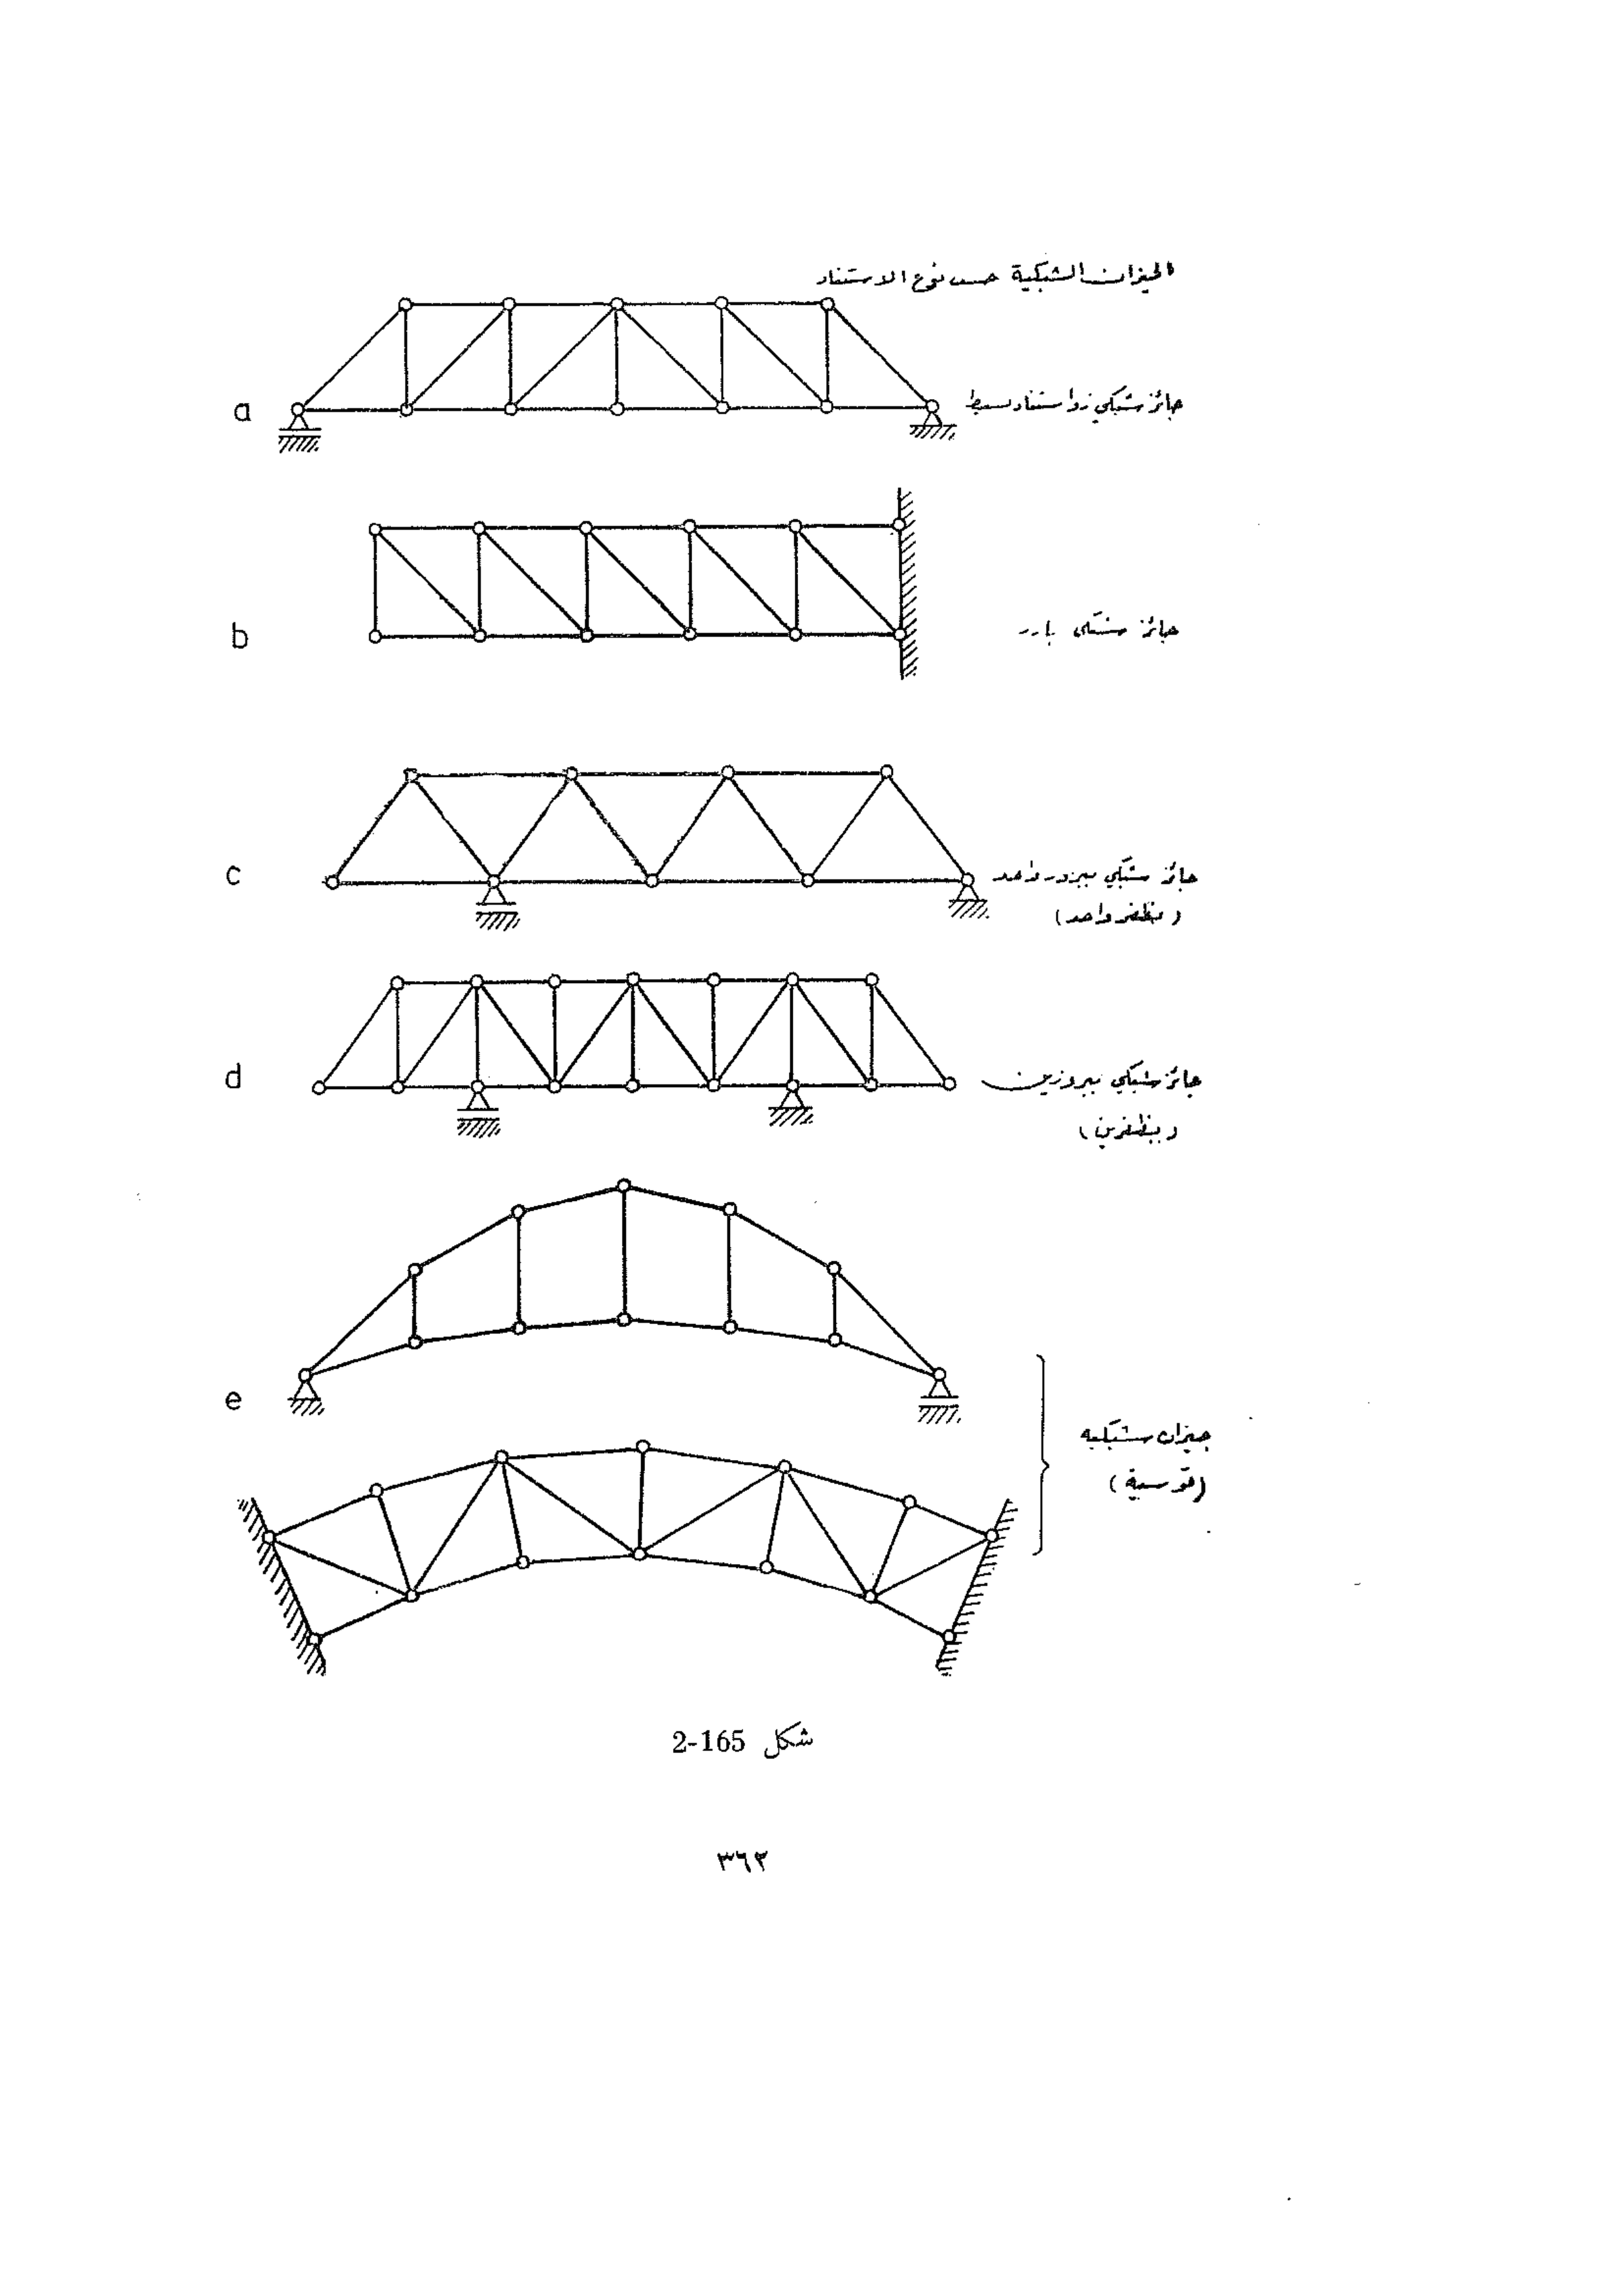 الجيزان الشبكية حسب نوع الاستناد
a
جائز شبكي ذو استناد بسيط
b
جائز شبكي بارز
c
جائز شبكي ببروز واحد
(بظفر واحد)
d
جائز شبكي ببروزين
(بظفرين)
e
جيزان شبكيه
(قوسية)
شكل 2-165
٣٦٣